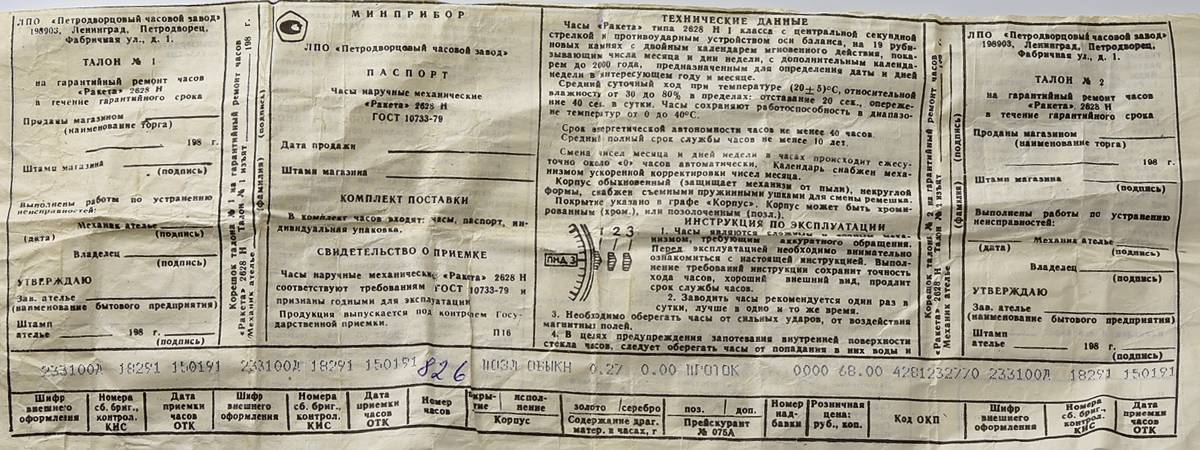 ЛПО «Петродворцовый часовой завод»
198903, Ленинград, Петродворец,
Фабричная ул., д. 1.
ТАЛОН № 1
на гарантийный ремонт часов
«Ракета» 2628 Н
в течение гарантийного срока
Проданы магазином
(наименование торга)
198 г.
Штамп магазина
(подпись)
Выполнены работы по устранению
неисправностей:
Механик ателье
(дата) (подпись)
Владелец
(подпись)
УТВЕРЖДАЮ
Зав. ателье
(наименование бытового предприятия)
Штамп
ателье 198 г.
(подпись)
Корешок талона № 1 на гарантийный ремонт часов
«Ракета» 2628 Н Талон № 1 изъят 198 г.
Механик ателье
(фамилия) (подпись)
МИНПРИБОР
ЛПО «Петродворцовый часовой завод»
ПАСПОРТ
Часы наручные механические
«Ракета» 2628 Н
ГОСТ 10733-79
Дата продажи
Штамп магазина
КОМПЛЕКТ ПОСТАВКИ
В комплект часов входят: часы, паспорт, ин-
дивидуальная упаковка.
СВИДЕТЕЛЬСТВО О ПРИЕМКЕ
Часы наручные механические «Ракета» 2628 Н
соответствуют требованиям ГОСТ 10733-79 и
признаны годными для эксплуатации
Продукция выпускается под контролем Госу-
дарственной приемки.
П16
ТЕХНИЧЕСКИЕ ДАННЫЕ
Часы «Ракета» типа 2628 Н I класса с центральной секундной
стрелкой и противоударным устройством оси баланса, на 19 руби-
новых камнях с двойным календарем мгновенного действия, пока-
зывающим числа месяца и дни недели, с дополнительным календа-
рем до 2000 года, предназначенным для определения даты и дней
недели в интересующем году и месяце.
Средний суточный ход при температуре (20±5)°С, относительной
влажности от 30 до 80% в пределах: отставание 20 сек., опереже-
ние 40 сек. в сутки. Часы сохраняют работоспособность в диапазо-
не температур от 0 до 40°С.
Срок энергетической автономности часов не менее 40 часов.
Средний полный срок службы часов не менее 10 лет.
Смена чисел месяца и дней недели в часах происходит ежесу-
точно около «0» часов автоматически. Календарь снабжен меха-
низмом ускоренной корректировки чисел месяца.
Корпус обыкновенный (защищает механизм от пыли), некруглой
формы, снабжен съемными пружинными ушками для смены ремешка.
Покрытие указано в графе «Корпус». Корпус может быть хроми-
рованным (хром.), или позолоченным (позл.).
ИНСТРУКЦИЯ ПО ЭКСПЛУАТАЦИИ
1 2 3
ПНД 3
1. Часы являются сложным меха-
низмом, требующим аккуратного обращения.
Перед эксплуатацией необходимо внимательно
ознакомиться с настоящей инструкцией. Выпол-
нение требований инструкции сохранит точность
хода часов, хороший внешний вид, продлит
срок службы часов.
2. Заводить часы рекомендуется один раз в
сутки, лучше в одно и то же время.
3. Необходимо оберегать часы от сильных ударов, от воздействия
магнитных полей.
4. В целях предупреждения запотевания внутренней поверхности
стекла часов, следует оберегать часы от попадания в них воды и
Корешок талона № 2 на гарантийный ремонт часов
«Ракета» 2628 Н Талон № 2 изъят
Механик ателье
(фамилия) (подпись)
ЛПО «Петродворцовый часовой завод»
198903, Ленинград, Петродворец,
Фабричная ул., д. 1.
ТАЛОН № 2
на гарантийный ремонт часов
«Ракета» 2628 Н
в течение гарантийного срока
Проданы магазином
(наименование торга)
198 г.
Штамп магазина
(подпись)
Выполнены работы по устранению
неисправностей:
Механик ателье
(дата) (подпись)
Владелец
(подпись)
УТВЕРЖДАЮ
Зав. ателье
(наименование бытового предприятия)
Штамп
ателье 198 г.
(подпись)
233100Д 18291 150191 233100Д 18291 150191 826 ПОЗЛ ОБЫКН 0.27 0.00 ПРОТОК 0000 68.00 4281232770 233100Д 18291 150191
Шифр внешнего оформления
Номера сб. бриг., контрол. КИС
Дата приемки часов ОТК
Шифр внешнего оформления
Номера сб. бриг., контрол. КИС
Дата приемки часов ОТК
Номер часов
крытие исполнение
Корпус
золото/серебро
Содержание драг. матер. в часах, г
поз. доп.
Прейскурант № 075А
Номер надбавки
Розничная цена: руб., коп.
Код ОКП
Шифр внешнего оформления
Номера сб. бриг., контрол. КИС
Дата приемки часов ОТК